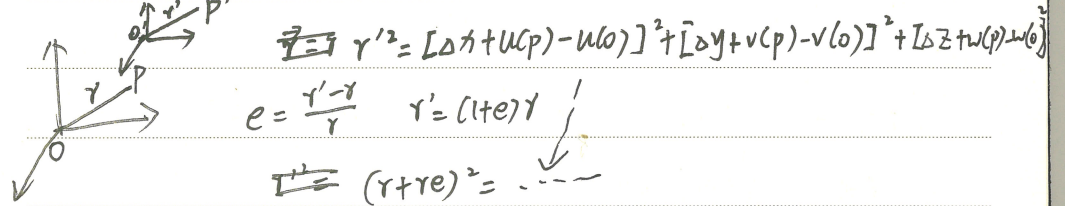 O' r' P'
r'² = [Δx+u(p)-u(o)]²+[Δy+v(p)-v(o)]²+[Δz+w(p)-w(o)]²
O r P
e = r'-r/r r'=(1+e)r
(r+re)² = ......